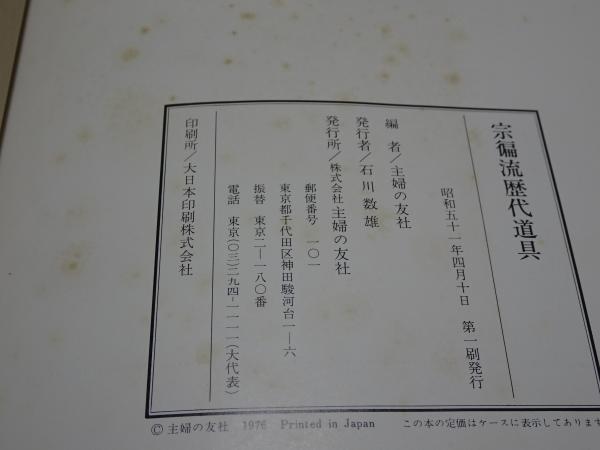 宗徧流歴代道具
昭和五十一年四月十日　第一刷発行
編　者／主婦の友社
発行者／石川数雄
発行所／株式会社主婦の友社
郵便番号　一〇一
東京都千代田区神田駿河台一―六
振替　東京二―一八〇番
電話　東京(〇三)二九四―一一一一(大代表)
印刷所／大日本印刷株式会社
© 主婦の友社　1976　Printed in Japan　この本の定価はケースに表示してあります